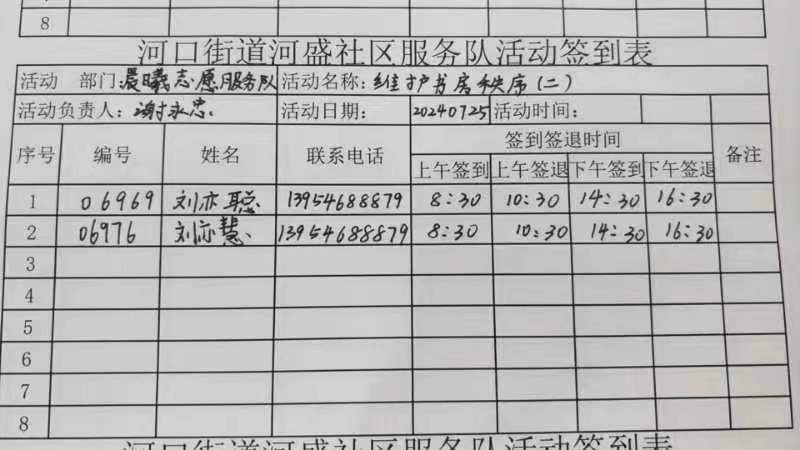 8
河口街道河盛社区服务队活动签到表
活动 部门：晨曦志愿服务队 活动名称：维护书房秩序（二）
活动负责人：谢永忠 活动日期： 20240725 活动时间：
序号 编号 姓名 联系电话 签到签退时间 备注
上午签到 上午签退 下午签到 下午签退
1 06969 刘亦聪 13954688879 8:30 10:30 14:30 16:30
2 06976 刘亦慧 13954688879 8:30 10:30 14:30 16:30
3
4
5
6
7
8
河口街道河盛社区服务队活动签到表